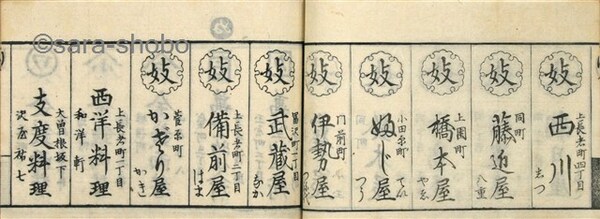 ©sara-shobo
上長者町四丁目
西川
しつ
妓
同町
藤近屋
八重
妓
上園町
橋本屋
やゑ
妓
小田原町
つう
妓
門前町
伊勢屋
妓
富沢町一丁目
武蔵屋
なか
妓
上長者町二丁目
備前屋
はま
妓
菅原町
かぎり屋
かき
上長者町一丁目
西洋料理
和洋軒
大曽根坂下
支度料理
沢屋祐七